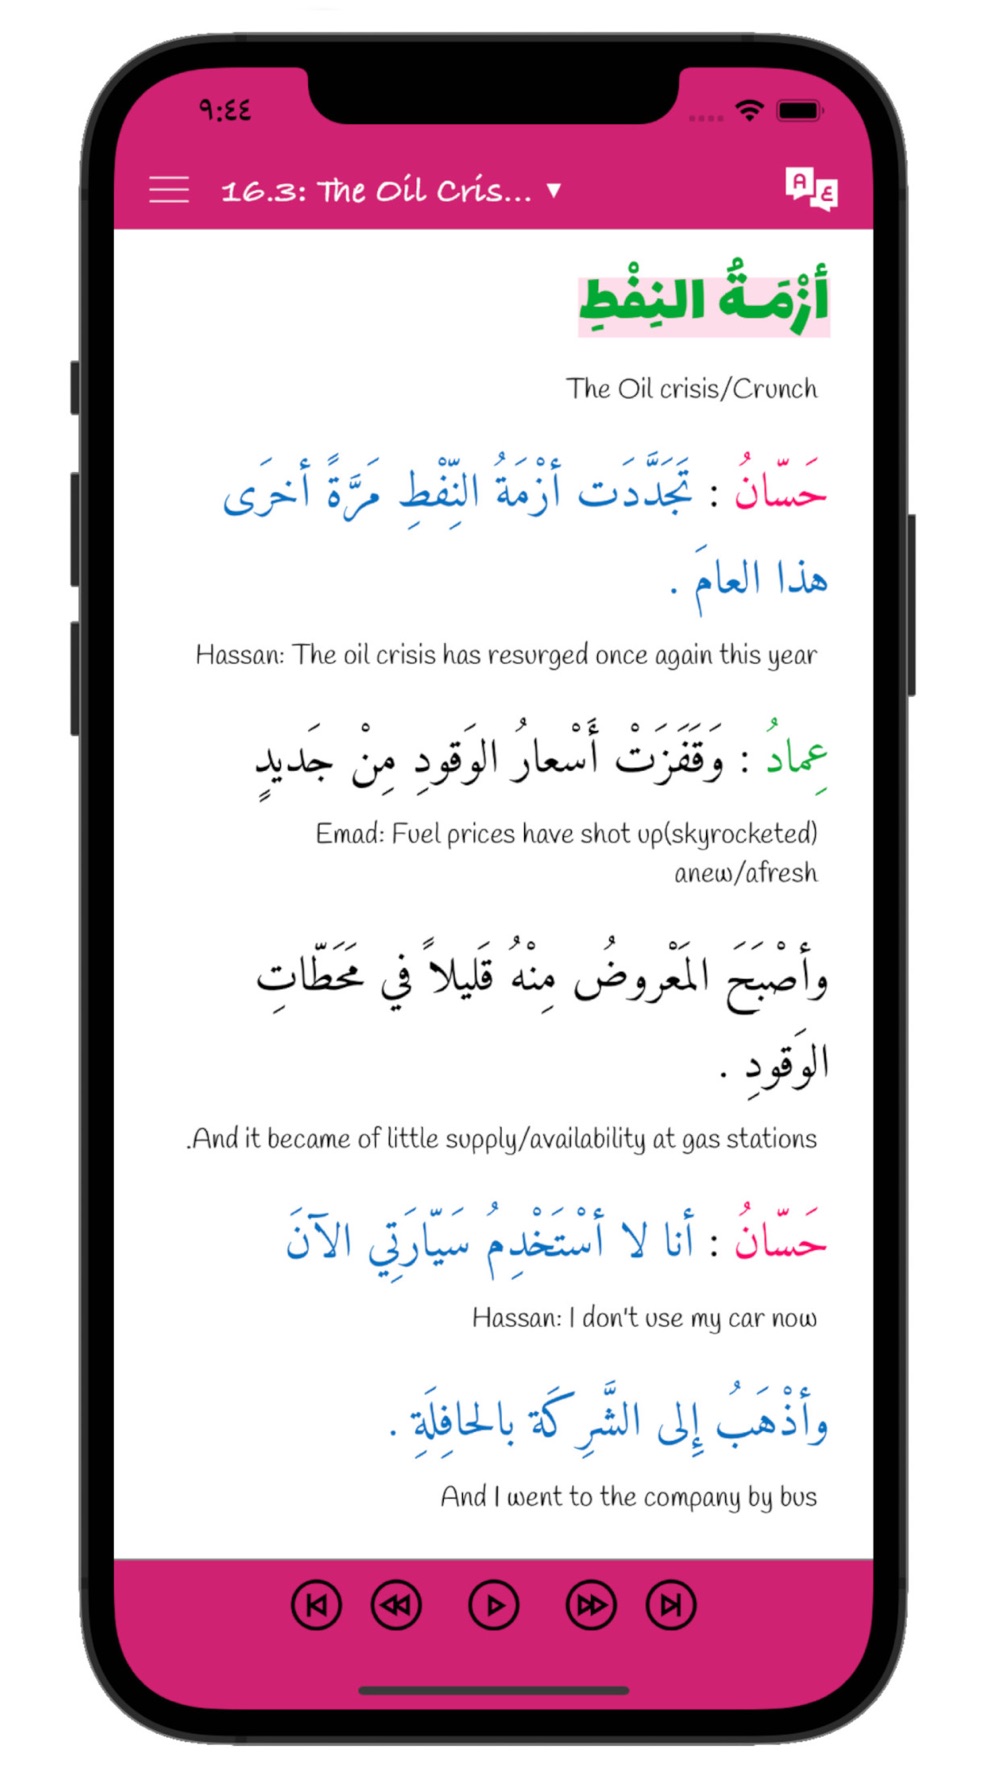 ٩:٤٤
16.3: The Oil Cris... ▼
A ع
أزْمَـةُ النِفْطِ
The Oil crisis/Crunch
حَسّانُ : تَجَدَّدَت أزْمَةُ النِّفْطِ مَرَّةً أخرَى
هذا العامَ .
Hassan: The oil crisis has resurged once again this year
عِمادُ : وَقَفَزَتْ أَسْعارُ الوَقودِ مِنْ جَديدٍ
Emad: Fuel prices have shot up(skyrocketed)
anew/afresh
وأصْبَحَ المَعْروضُ مِنْهُ قَليلاً في مَحَطّاتِ
الوَقودِ .
.And it became of little supply/availability at gas stations
حَسّانُ : أنا لا أسْتَخْدِمُ سَيّارَتِي الآنَ
Hassan: I don't use my car now
وأذْهَبُ إِلى الشَّرِكَة بالحافِلَةِ .
And I went to the company by bus